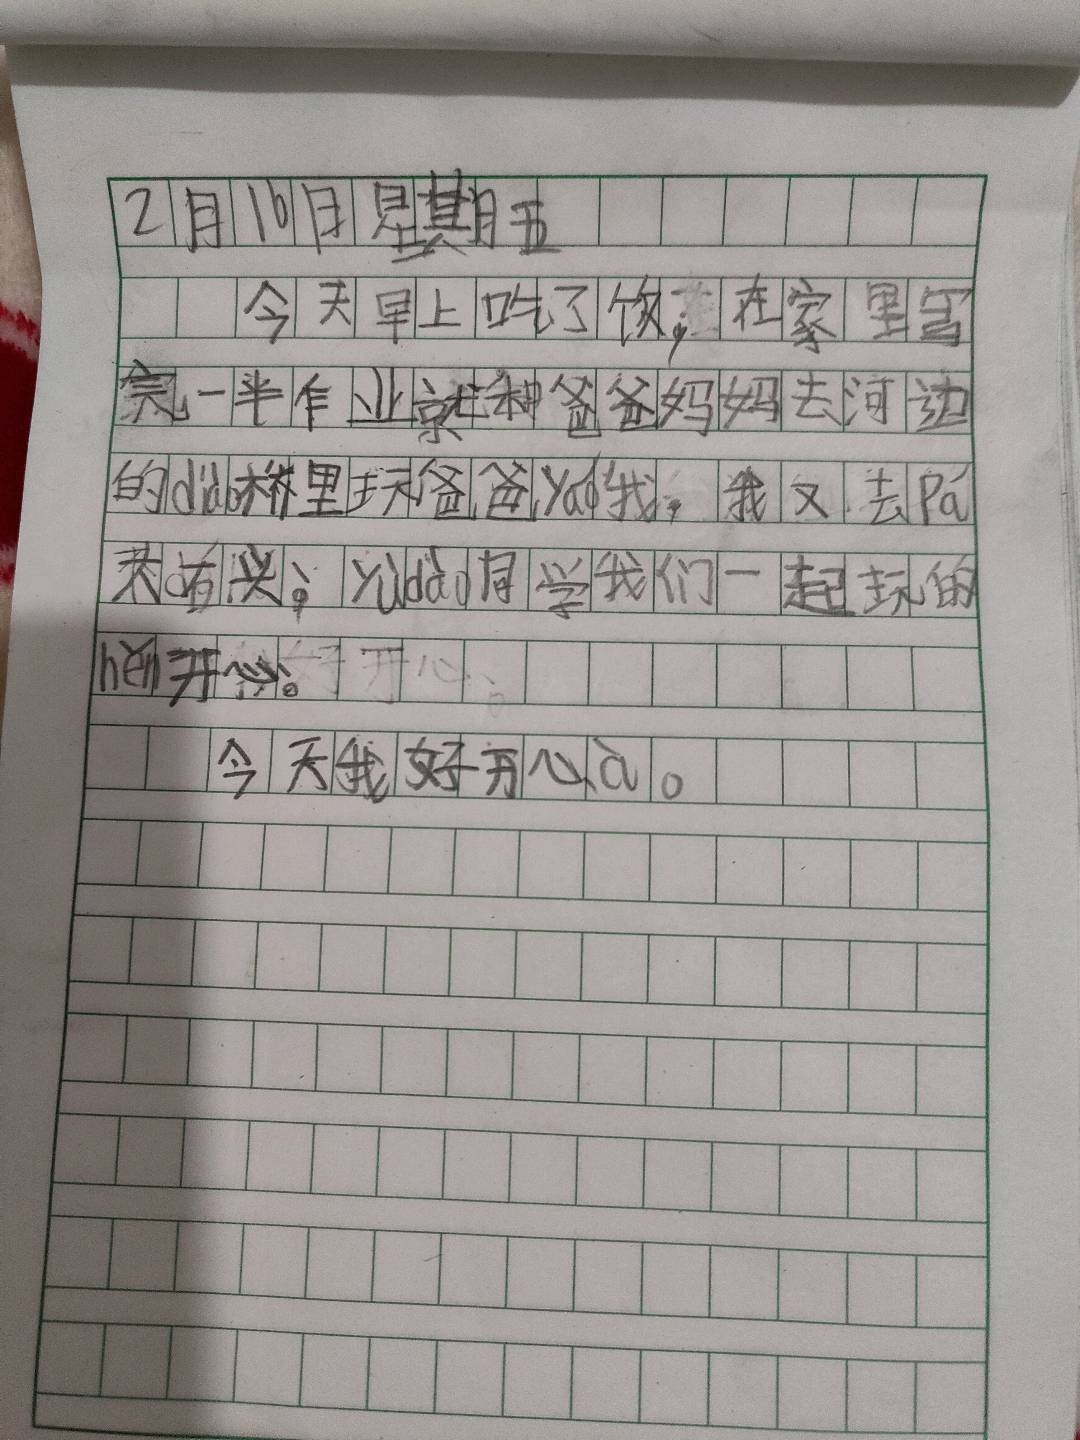 2月16日星期五
今天早上吃了饭，在家里写
完一半作业就和爸爸妈妈去河边
的diào桥里玩爸爸yáo我，我又去pá
来 兴，yùdào同学我们一起玩的
hěn开心。
今天我好开心à。